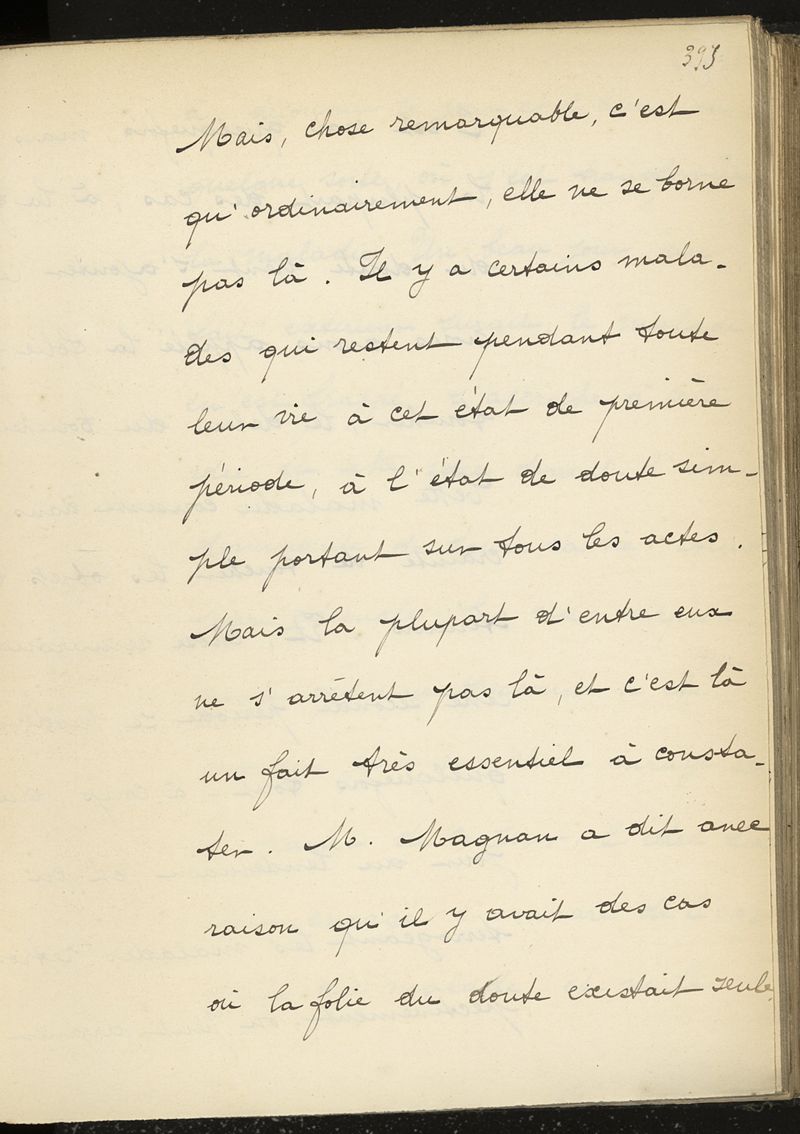 393
Mais, chose remarquable, c'est
qu'ordinairement, elle ne se borne
pas là. Il y a certains mala-
des qui restent pendant toute
leur vie à cet état de première
période, à l'état de doute sim-
ple portant sur tous les actes.
Mais la plupart d'entre eux
ne s'arrêtent pas là, et c'est là
un fait très essentiel à consta-
ter. M. Magnan a dit avec
raison qu'il y avait des cas
où la folie du doute existait seule